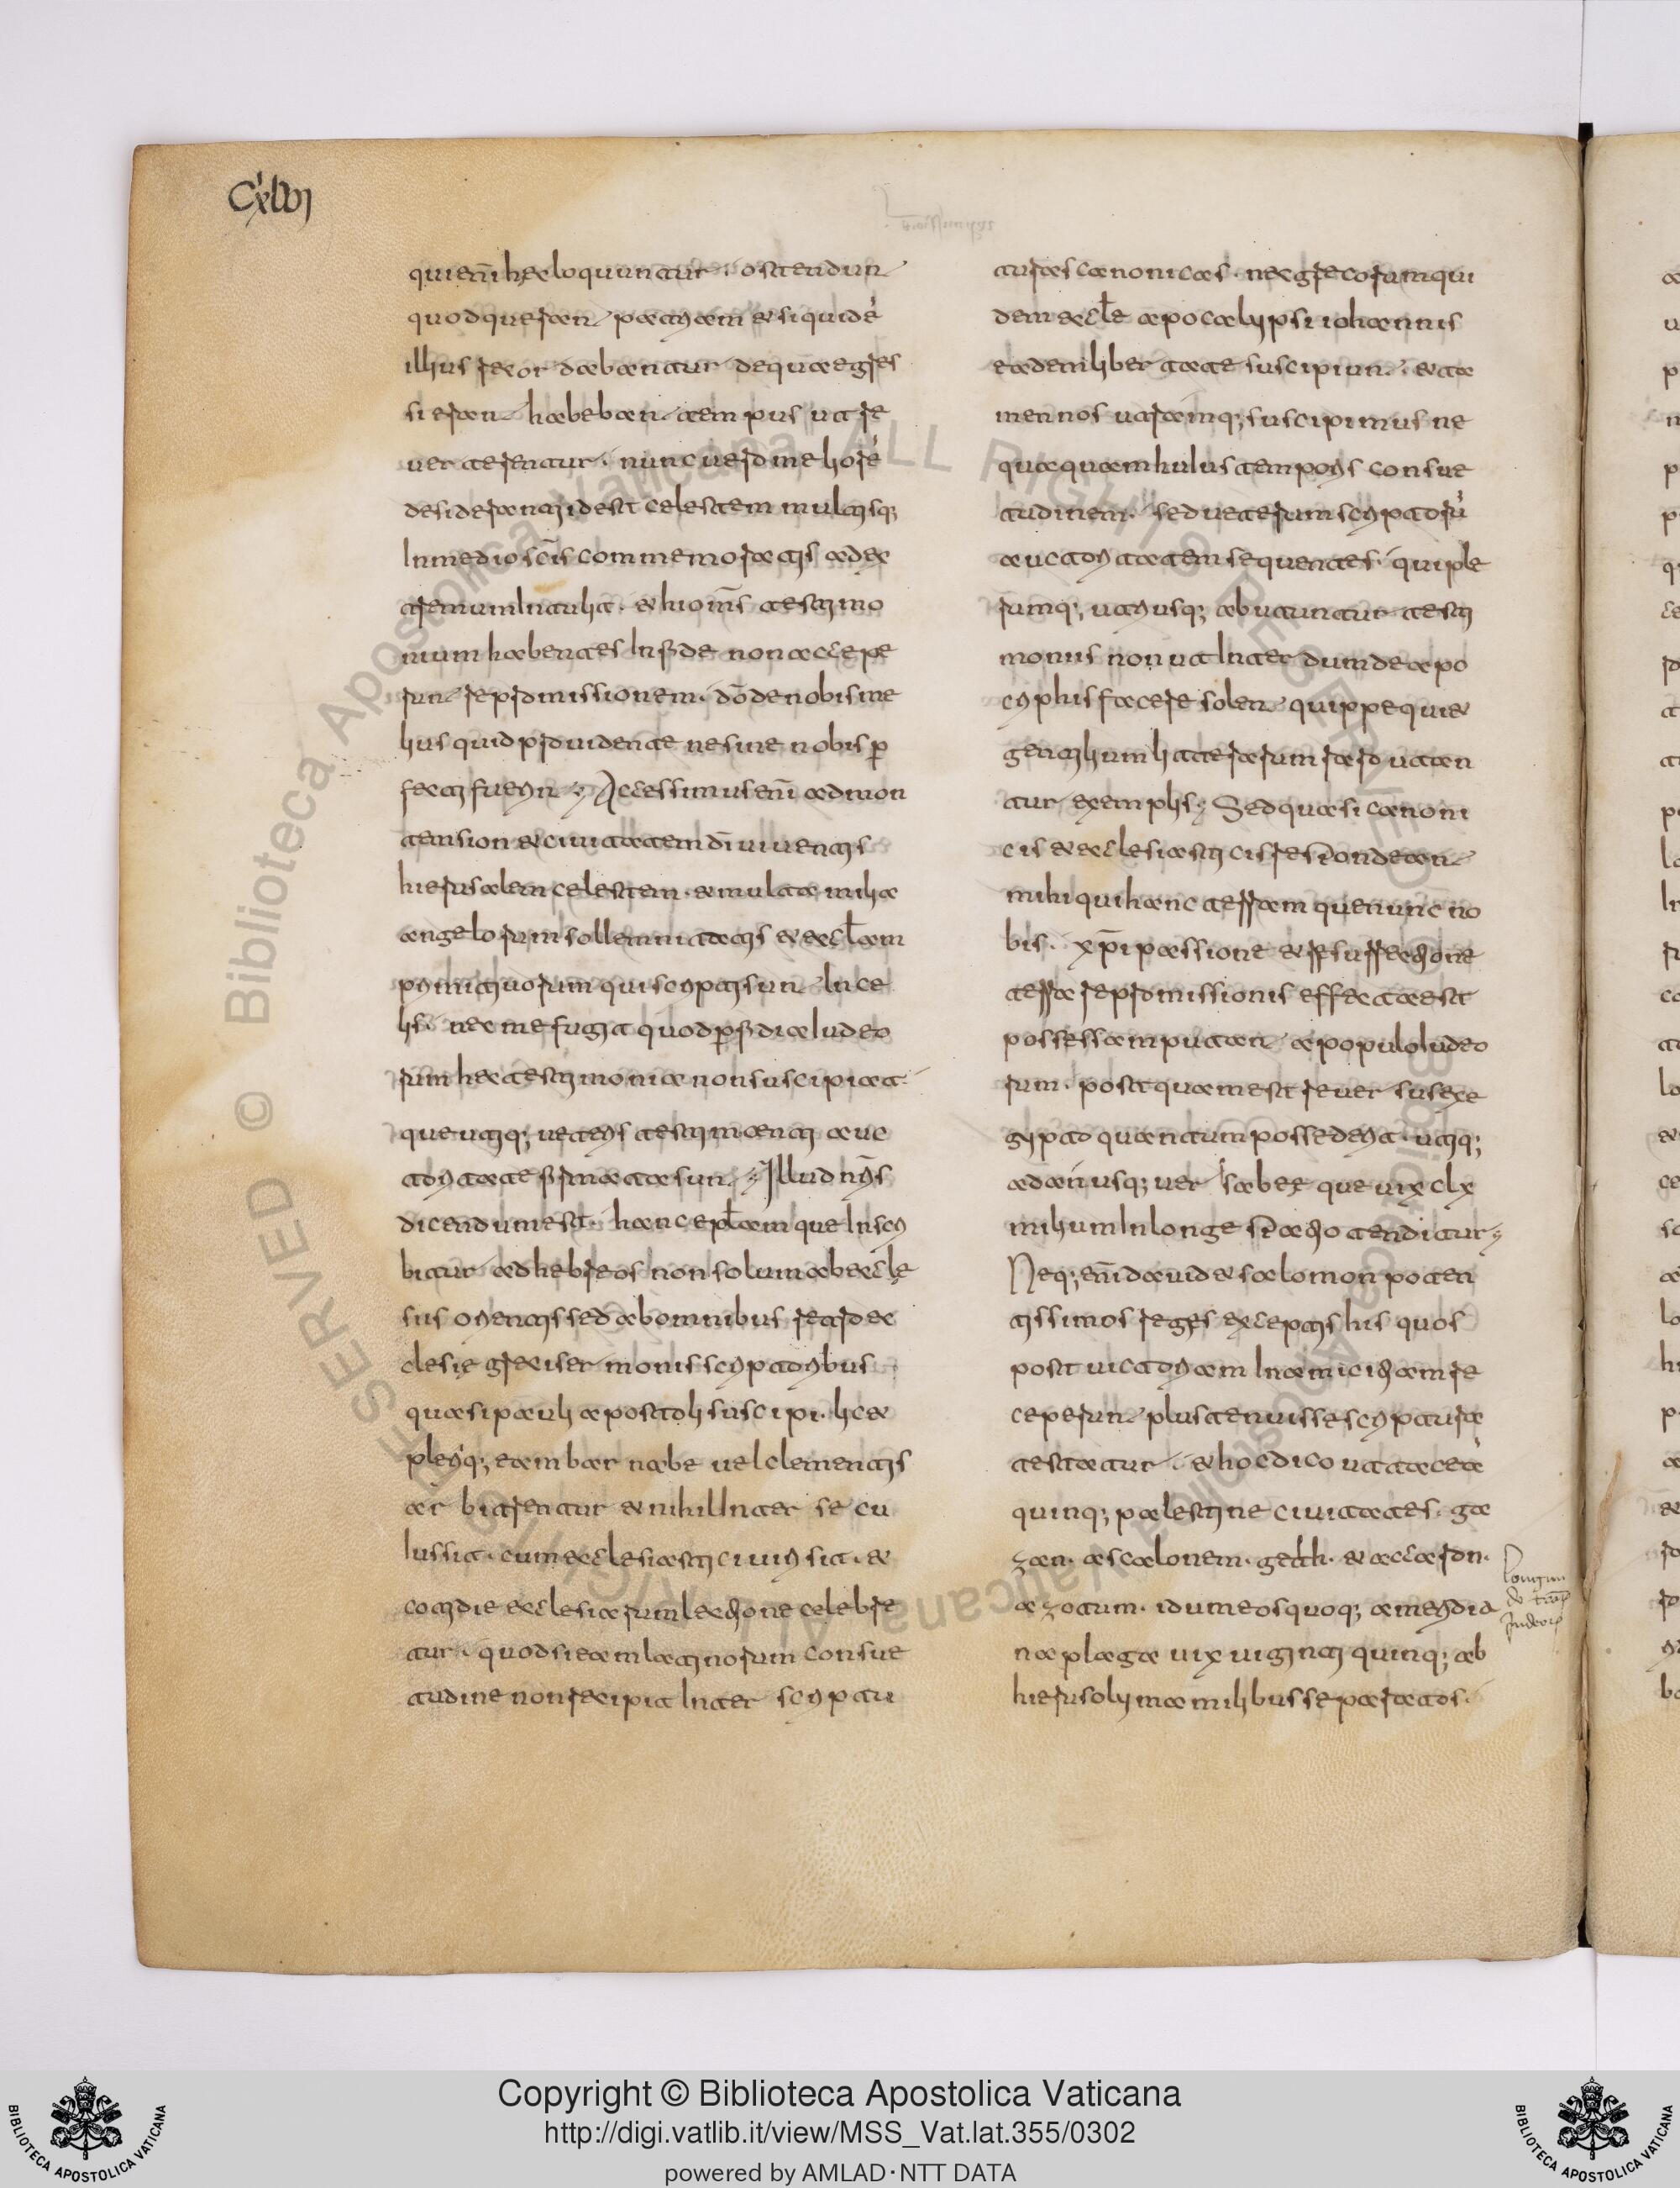 CXLVI
qui eni hec loquuntur. ostendunt
quod querant patriam et siquidē
illius recordabantur de qua egres
si erant habebant tempus ut re
verterentur. nunc vero meliorē
desiderant id est celestem multisq;
In medio scis commemoratis adiec
tremum Intulit. et hi oms testimo
nium habentes In fide non accepe
runt repromissionem. dō de nobis me
lius quid providente ne sine nobis p
fecti fuerint; Accessimus eni ad mon
tem sion et civitatem di viventis
hierusalem celestem. et multa milia
angelorum sollemnitatis et eccłam
primitivorum qui scripti sunt In ce
lis. nec me fugit quod perfidia Iudeo
rum hec testimonia non suscipiat.
que utiq; veteris testimenti auc
toritate firmata sunt; Illud nris
dicendum est. hanc epłam que Inscri
bitur ad hebreos non solum ab eccle
siis orientis sed ab omnibus retro ec
clesie greci sermonis scriptoribus
quasi pauli apostoli suscipi. licet
pleriq; eam barnabe vel clementis
arbitrentur et nihil Interse cu
Iussit. cum ecclesiastici viri sit. et
cotidie ecclesiarum lectione celebre
tur. quod si eam latinorum consue
tudine non recipit Inter scriptu
turas canonicas. nec grecorum qui
dem eccłe apocalypsi iohannis
eadem libertate suscipiunt. et ta
men nos utramq; suscipimus ne
quaquam huIus temporis consue
tudinem. sed veterum scriptorū
auctoritatem sequentes. qui ple
rumq; utriusq; abutuntur testi
moniis non ut Interdum de apo
cryphis facere solent quippe qui et
gentilium litterarum raro utan
tur exemplis; Sed quasi canoni
cis et ecclesiasticis respondeant
mihi qui hanc terram que nunc no
bis. xpi passione et resurrectione
terra repromissionis effecta est
possessam putant a populo Iudeo
rum. postquam est reversus exe
gypto quantum possederit. utiq;
a dan usq; versabee que vix clx
milium In longe spatio tenditur;
Neq; eni david et salomon poten
tissimos reges exceptis his quos
post victoriam In amicitiam re
ceperunt plus tenuisse scriptura
testatur. et hoc dico ut taceā
quinq; palestine civitates. ga
zan. ascalonem. geth. et accaron.
azotum. idumeos quoq; a meridia
na plaga vix viginti quinq; ab
hierusolyma milibus separatos.